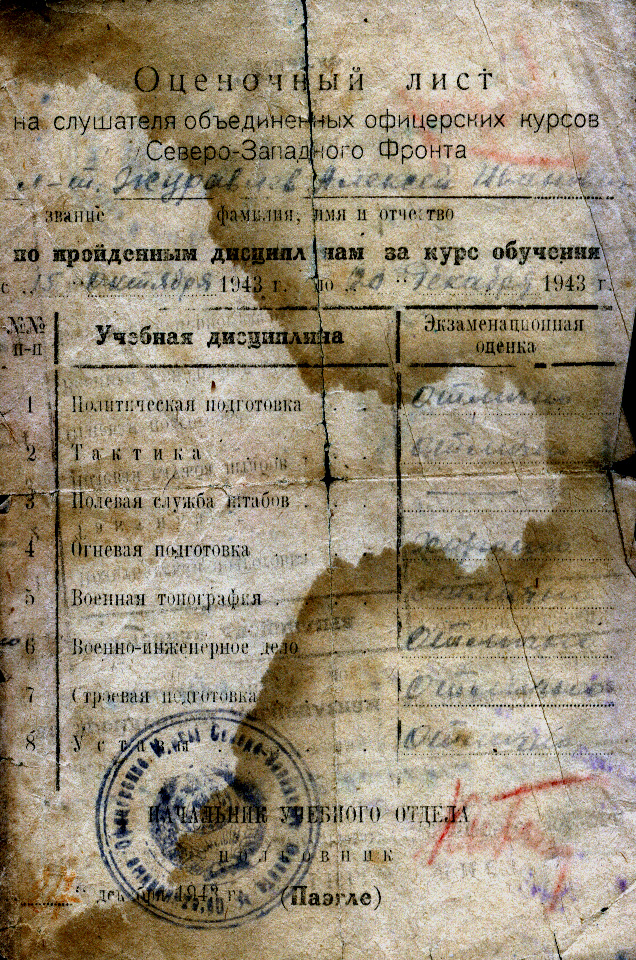 Оценочный лист
на слушателя объединенных офицерских курсов
Северо-Западного Фронта
л-т. Журавлев Алексей
звание фамилия, имя и отчество
по пройденным дисциплинам за курс обучения
с 15 октября 1943 г. по 20 декабря 1943 г.
№№ п-п Учебная дисциплина Экзаменационная оценка
1 Политическая подготовка отлично
2 Тактика отлично
3 Полевая служба штабов —
4 Огневая подготовка хорошо
5 Военная топография отлично
6 Военно-инженерное дело отлично
7 Строевая подготовка отлично
8 Уставы отлично
НАЧАЛЬНИК УЧЕБНОГО ОТДЕЛА
полковник
" декабря 1943 г. (Паэгле)